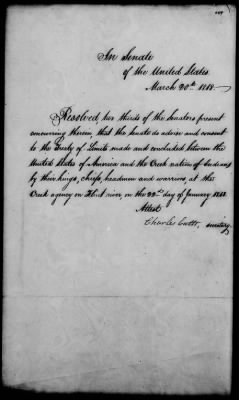 In Senate
of the United States
March 20th 1818
Resolved, two thirds of the Senators present
concurring therein, that the Senate do advise and consent
to the Treaty of Limits made and concluded between the
United States of America and the Creek nation of Indians
by their kings, chiefs, headmen and warriors, at the
Creek agency on Flint river, on the 22nd day of January 1818.
Attest
Charles Cutts, secretary